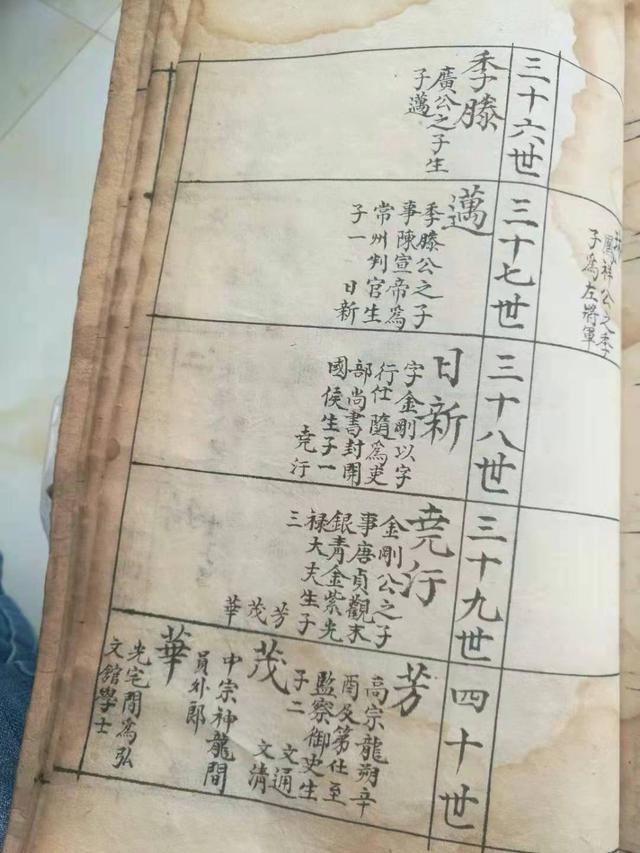 鳳祥公之季
子為左將軍
三十六世
季滕
廣公之子生
子邁
三十七世
邁
季滕公之子
事陳宣帝為
常州判官生
子一 日新
三十八世
日新
字金剛以字
行仕隨為吏
部尚書封開
國侯生子一
堯行
三十九世
堯行
金剛公之子
事唐貞觀末
銀青金紫光
禄大夫生子
三
芳
茂
華
四十世
芳
高宗龍朔辛
酉及第仕至
監察御史生
子二 文通
文清
茂
中宗神龍間
員外郎
華
光宅間為弘
文館學士